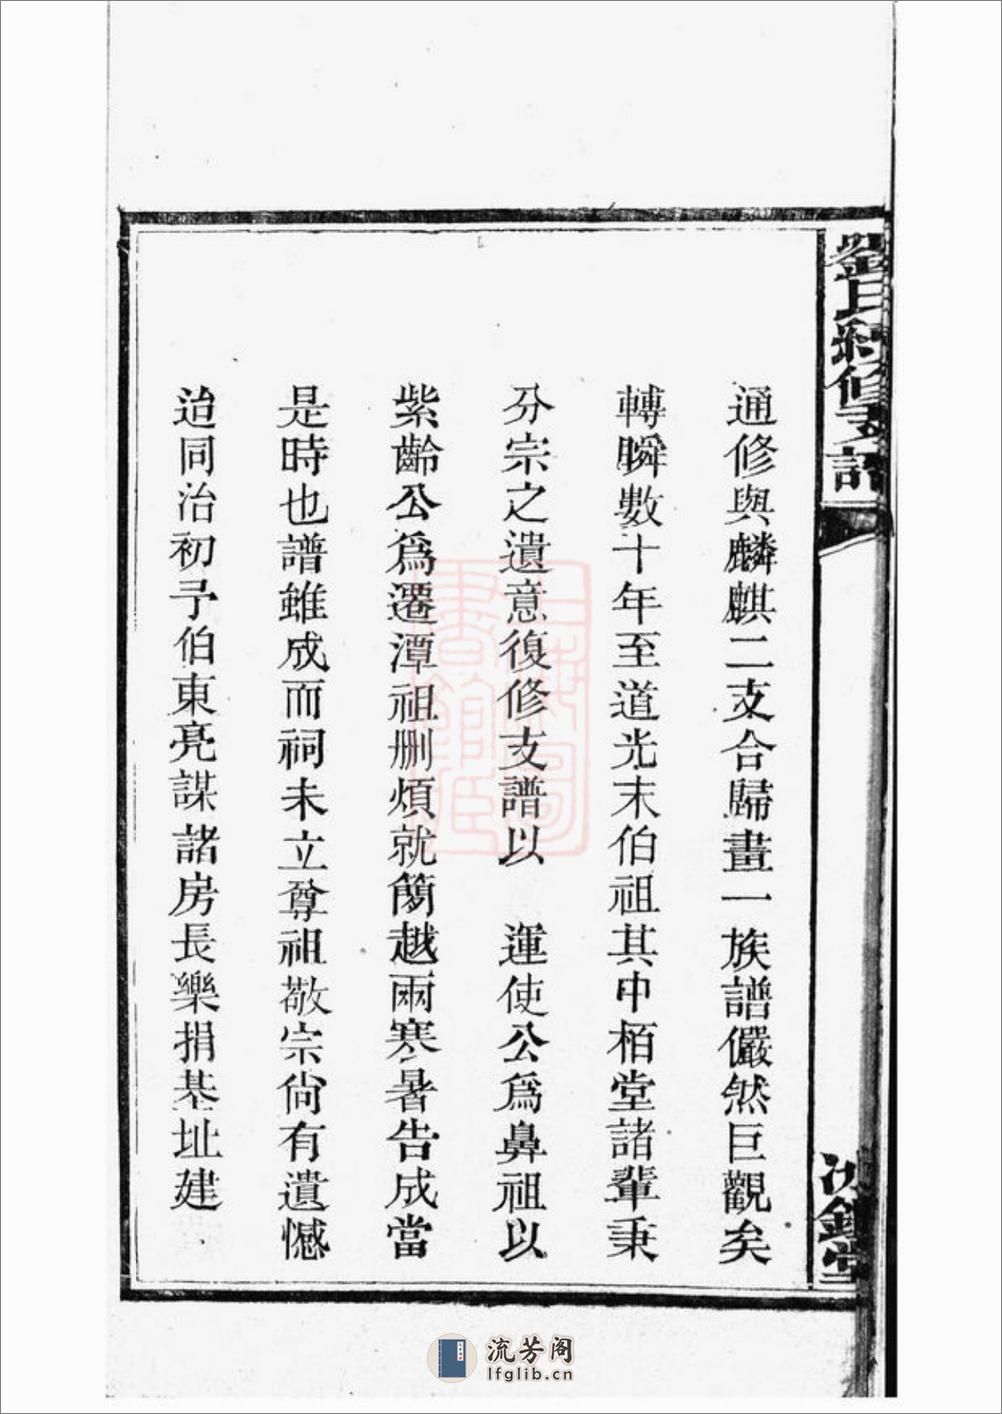 劉氏續修支譜
通修與麟麒二支合歸畫一族譜儼然巨觀矣
轉瞬數十年至道光末伯祖其中栢堂諸輩秉
分宗之遺意復修支譜以　運使公爲鼻祖以
紫齡公爲遷潭祖删煩就簡越兩寒暑告成當
是時也譜雖成而祠未立尊祖敬宗尙有遺憾
迨同治初予伯東亮謀諸房長樂捐基址建
上海圖書館藏
流芳阁
lfglib.cn